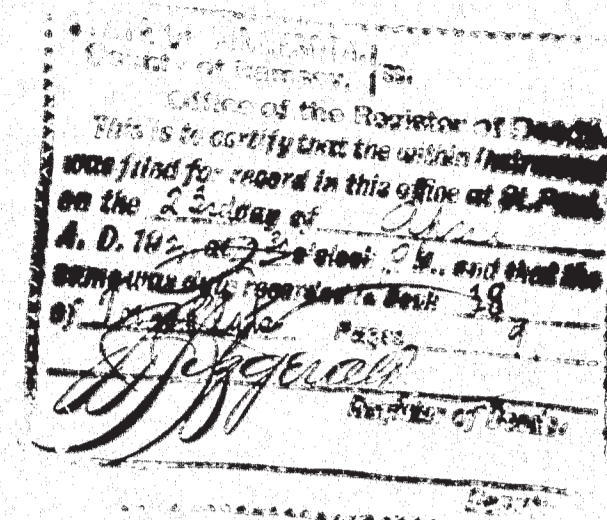 County of Ramsey, } ss.
Office of the Register of Deeds
This is to certify that the within Instrument
was filed for record in this office at St. Paul
on the 22d day of
A. D. 19 at o'clock P M., and that the
same was duly recorded in Book 18
of Pages 9
Fitzgerald
Register of Deeds.